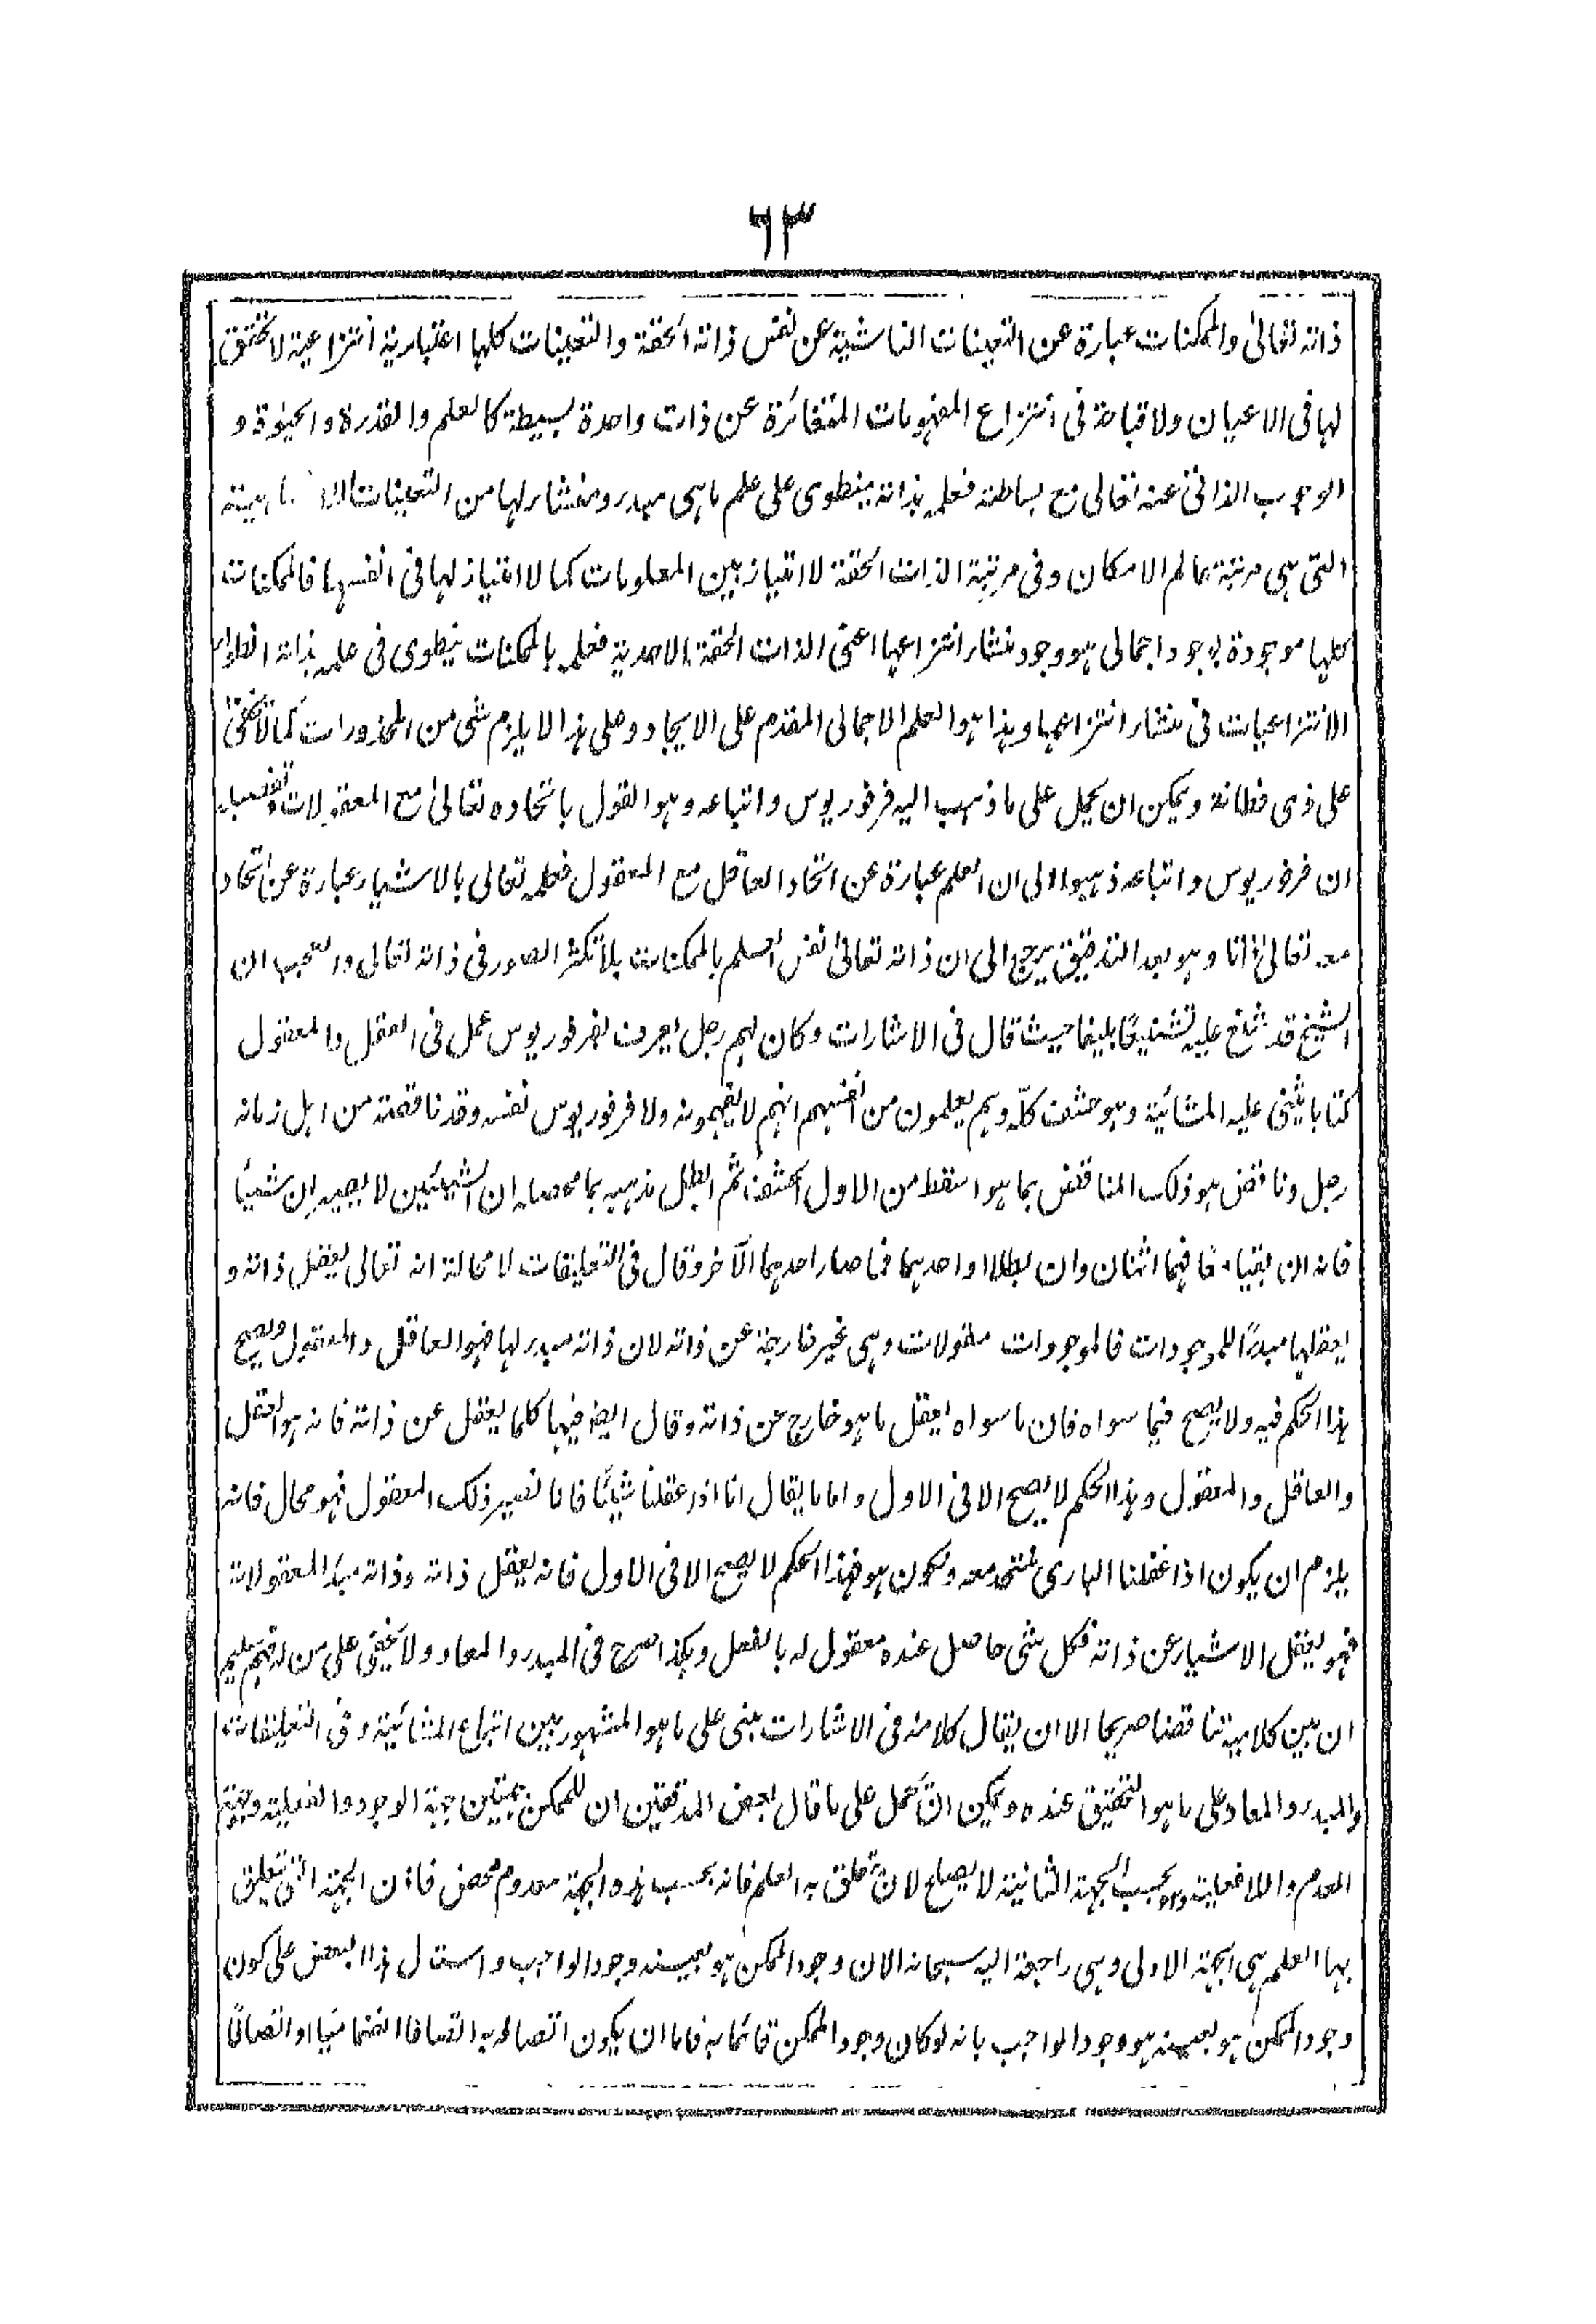 ٦٣
ذاته تعالى والممكنات عبارة عن التعينات الناشية عن نفس ذاته الحقة والتعينات كلها اعتبارية انتزاعية لا تحقق
لها فى الاعيان ولا قباحة فى انتزاع المفهومات المتغائرة عن ذات واحدة بسيطة كالعلم والقدرة والحيوٰة و
الوجوب الذاتى عنه تعالى مع بساطته فعلمه بذاته ينطوى على علم ما هى مبدء ومنشاء لها من التعينات
التى هى مرتبة عالم الامكان وفى مرتبة الذات الحقة لا امتياز بين المعلومات كما لا امتياز لها فى انفسها فالممكنات
كلها موجودة بوجود اجمالى هو وجود منشاء انتزاعها اعنى الذات الحقة الاحدية فعلمه بالممكنات ينطوى فى علمه بذاته انطواء
الانتزاعيات فى منشاء انتزاعها وهذا هو العلم الاجمالى المقدم على الايجاد وعلى هذا لا يلزم شى من المحذورات كما لا يخفى
على ذى فطانة ويمكن ان يحمل على ما ذهب اليه فرفوريوس واتباعه وهو القول باتحاده تعالىٰ مع المعقولات وتفصيله
ان فرفوريوس واتباعه ذهبوا الى ان العلم عبارة عن اتحاد العاقل مع المعقول فعلمه تعالى بالاشياء عبارة عن اتحاد
معه تعالىٰ ذاتا وهو بعد التدقيق يرجع الى ان ذاته تعالىٰ نفس العلم بالممكنات بلا تكثر الصور فى ذاته تعالى والعجب ان
الشيخ قد شنع عليه تشنيعًا بليغا حيث قال فى الاشارات وكان لهم رجل يعرف بفرفوريوس عمل فى العقل والمعقول
كتابا يثنى عليه المشائية وهو حشف كلّه وهم يعلمون من انفسهم انهم لا يفهمونه ولا فرفوريوس نفسه وقد ناقضه من اهل زمانه
رجل وناقض هو ذلك المناقض بما هو اسقط من الاول الحشف ثم ابطل مذهبه بما محصله ان الشيئين لا يصيران شيئًا
فانه ان بقيا معًا فهما اثنان وان بطلا او احدهما فما صار احدهما الآخر وقال فى التعليقات لا محالة انه تعالى يعقل ذاته و
يعقلها مبدءًا للموجودات فالموجودات معقولات وهى غير خارجة عن ذاته لان ذاته مبدء لها فهو العاقل والمعقول ويصح
هذا الحكم فيه ولا يصح فيما سواه فان ما سواه يعقل ما هو خارج عن ذاته وقال ايضا فيها كلما يعقل عن ذاته فانه هو العقل
والعاقل والمعقول وهذا الحكم لا يصح الا فى الاول واما ما يقال انا اذا عقلنا شيئًا فانا نصير ذلك المعقول فهو محال فانه
يلزم ان يكون اذا عقلنا البارى نتحد معه ونكون هو فهذا الحكم لا يصح الا فى الاول فانه يعقل ذاته وذاته مبدأ المعقولات
فهو يعقل الاشياء عن ذاته فكل شى حاصل عنده معقول له بالفعل وهكذا صرح فى المبدء والمعاد ولا يخفى على من له فهم سليم
ان بين كلاميه تناقضا صريحا الا ان يقال كلامه فى الاشارات مبنى على ما هو المشهور بين اتباع المشائية وفى التعليقات
والمبدء والمعاد على ما هو التحقيق عنده ويمكن ان يحمل على ما قال بعض المدققين ان للممكن جهتين جهة الوجود والفعلية وجهة
العدم واللافعلية وهو بحسب الجهة الثانية لا يصلح لان يتعلق به العلم فانه بحسب هذه الجهة معدوم محض فاذن الجهة التى يتعلق
بها العلم هى الجهة الاولى وهى راجعة اليه سبحانه الان وجود الممكن هو بعينه وجود الواجب واستدل هذا البعض على كون
وجود الممكن هو بعينه هو وجود الواجب بانه لو كان وجود الممكن قائما به فاما ان يكون اتصافه به اتصافا انضماميا او اتصافًا